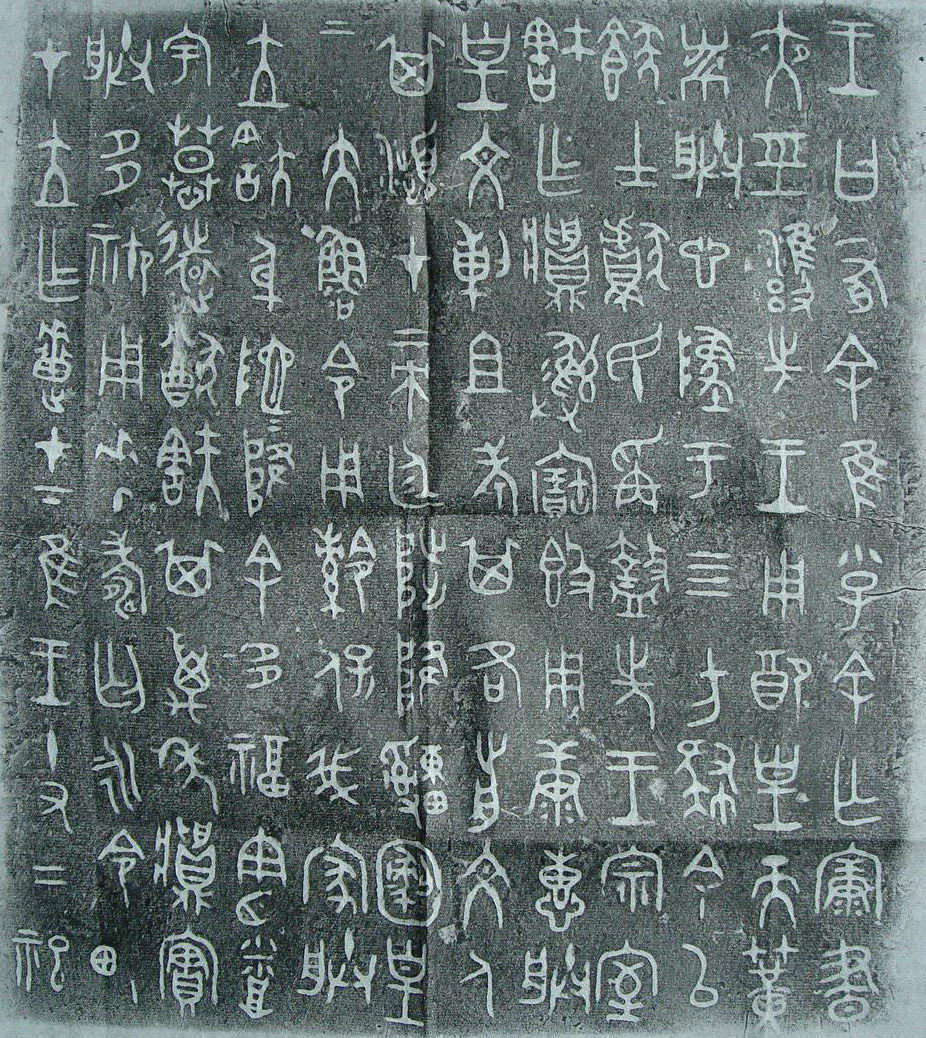 王曰有余隹小子余亡康晝
夜巠雝先王用配皇天簧
黹朕心墜于四方肆余以
䭣士獻民爯盩先王宗室
㝬乍𩰫彝寶簋用康惠朕
皇文剌且考其各前文人
其瀕才帝廷陟降申恪皇
帝大魯令用令保我家朕
立㝬身阤阤降余多福憲烝
宇慕遠猷㝬其萬年𩰫實
朕多禦用𠦪壽匄永令畯
才立乍疐才下隹王十又二祀